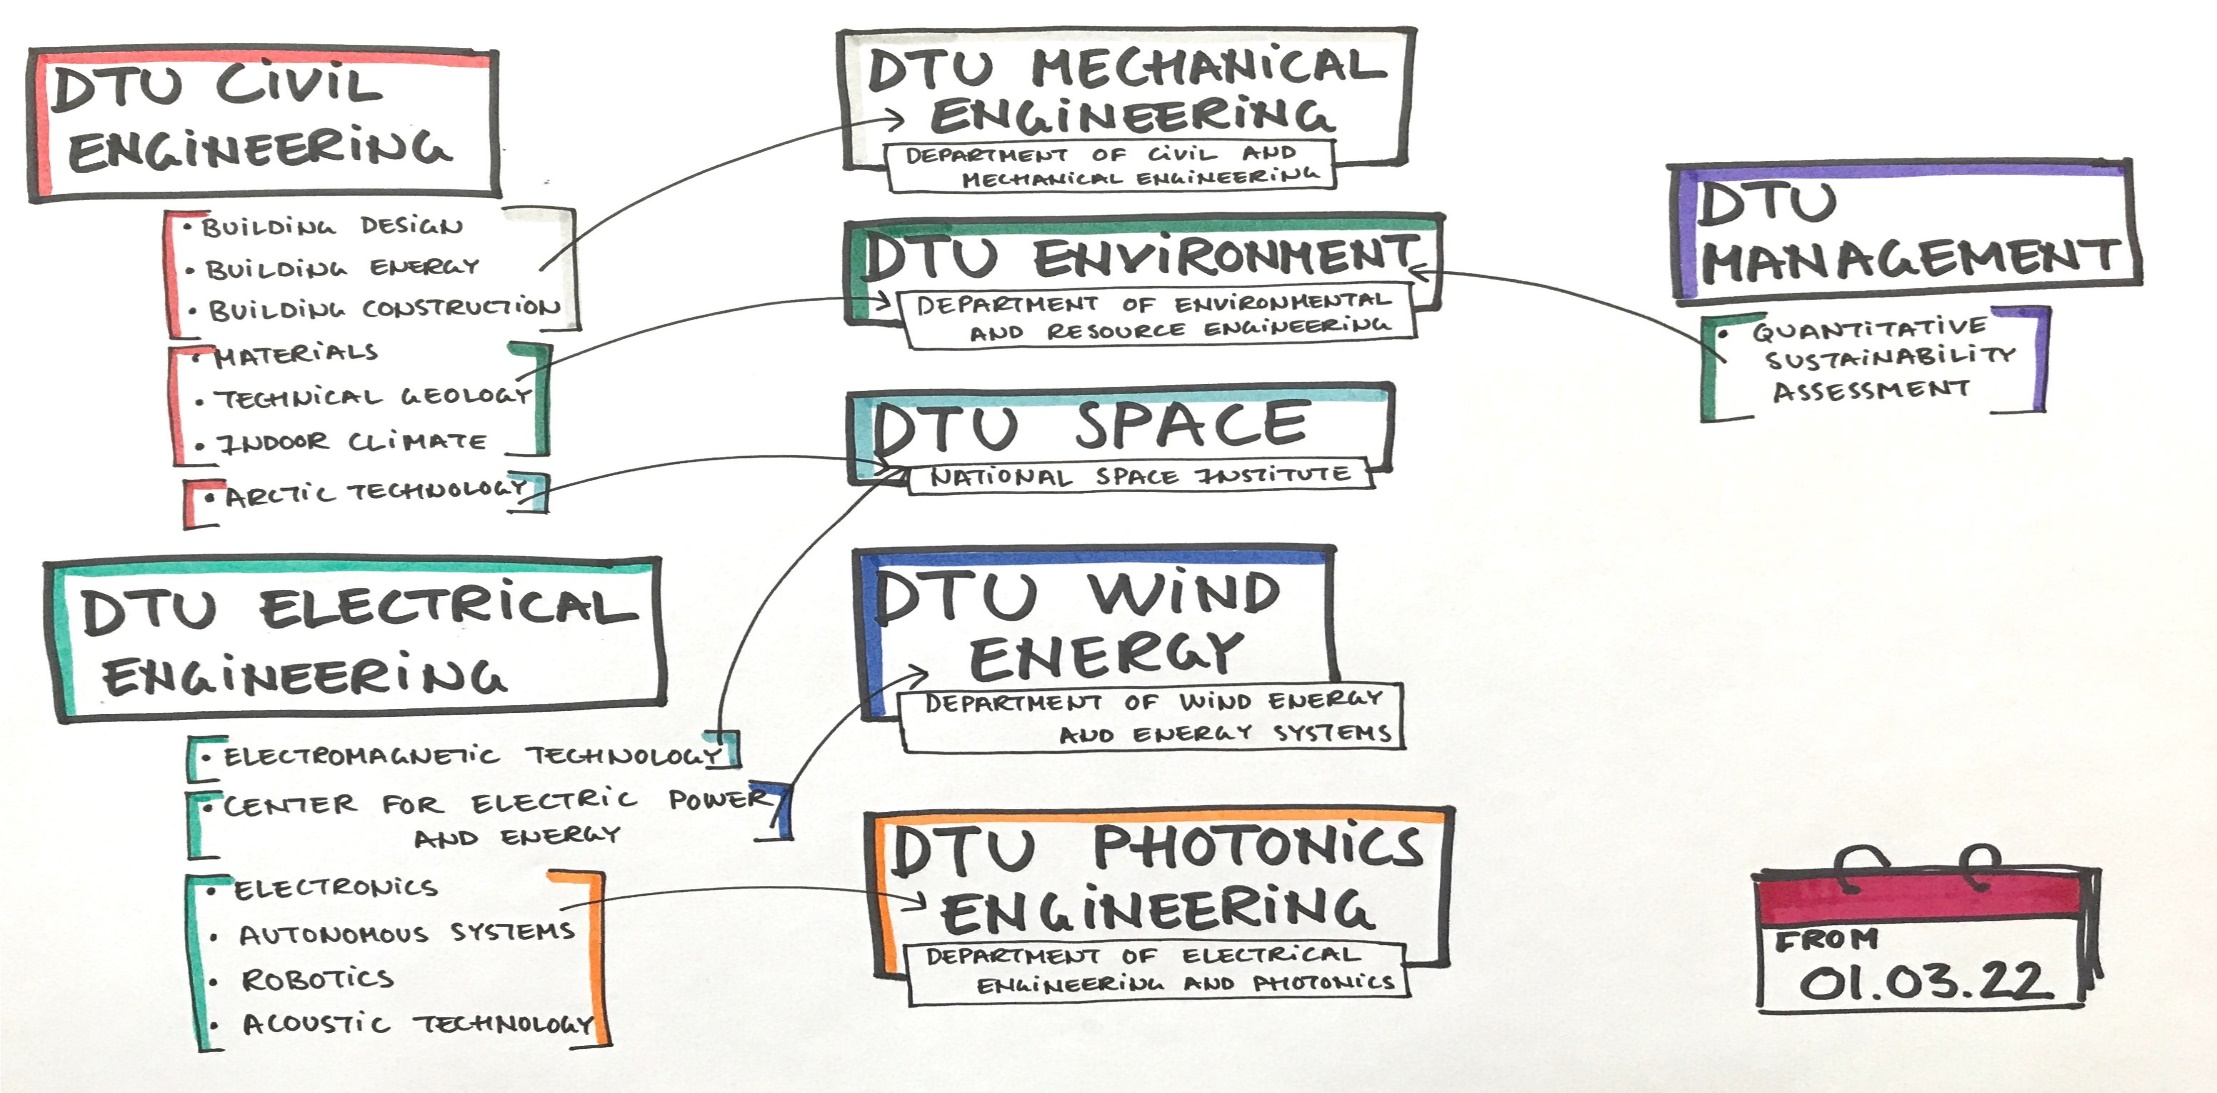 DTU CiViL
ENGiNEERiNG
• BUiLDiNG DESiGN
• BUiLDiNG ENERGY
• BUiLDiNG CONSTRUCTiON
• MATERiALS
• TECHNiCAL GEOLOGY
• INDOOR CLiMATE
• ARCTiC TECHNOLOGY
DTU ELECTRiCAL
ENGiNEERiNG
• ELECTROMAGNETiC TECHNOLOGY
• CENTER FOR ELECTRiC POWER
AND ENERGY
• ELECTRONiCS
• AUTONOMOUS SYSTEMS
• ROBOTiCS
• ACOUSTiC TECHNOLOGY
DTU MECHANiCAL
ENGiNEERiNG
DEPARTMENT OF CiViL AND
MECHANiCAL ENGiNEERiNG
DTU ENViRONMENT
DEPARTMENT OF ENViRONMENTAL
AND RESOURCE ENGiNEERiNG
DTU SPACE
NATiONAL SPACE INSTiTUTE
DTU WiND
ENERGY
DEPARTMENT OF WiND ENERGY
AND ENERGY SYSTEMS
DTU PHOTONiCS
ENGiNEERiNG
DEPARTMENT OF ELECTRiCAL
ENGiNEERiNG AND PHOTONiCS
DTU
MANAGEMENT
• QUANTiTATiVE
SUSTAiNABiLiTY
ASSESSMENT
FROM
01.03.22